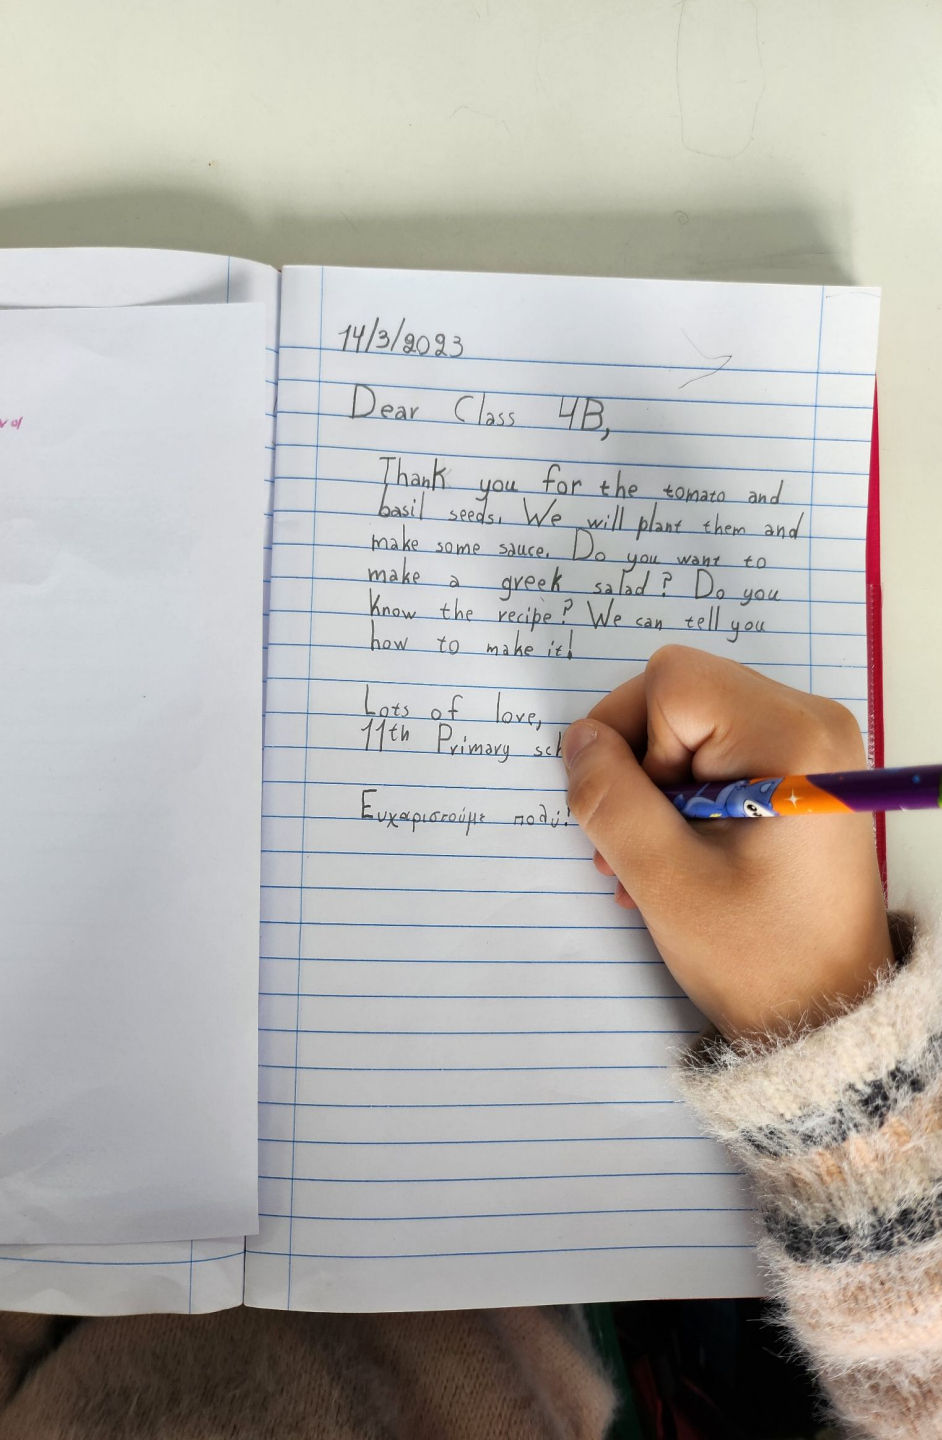 14/3/2023
Dear Class 4B,
Thank you for the tomato and
basil seeds. We will plant them and
make some sauce. Do you want to
make a greek salad? Do you
know the recipe? We can tell you
how to make it!
Lots of love,
11th Primary sch
Ευχαριστούμε πολύ!